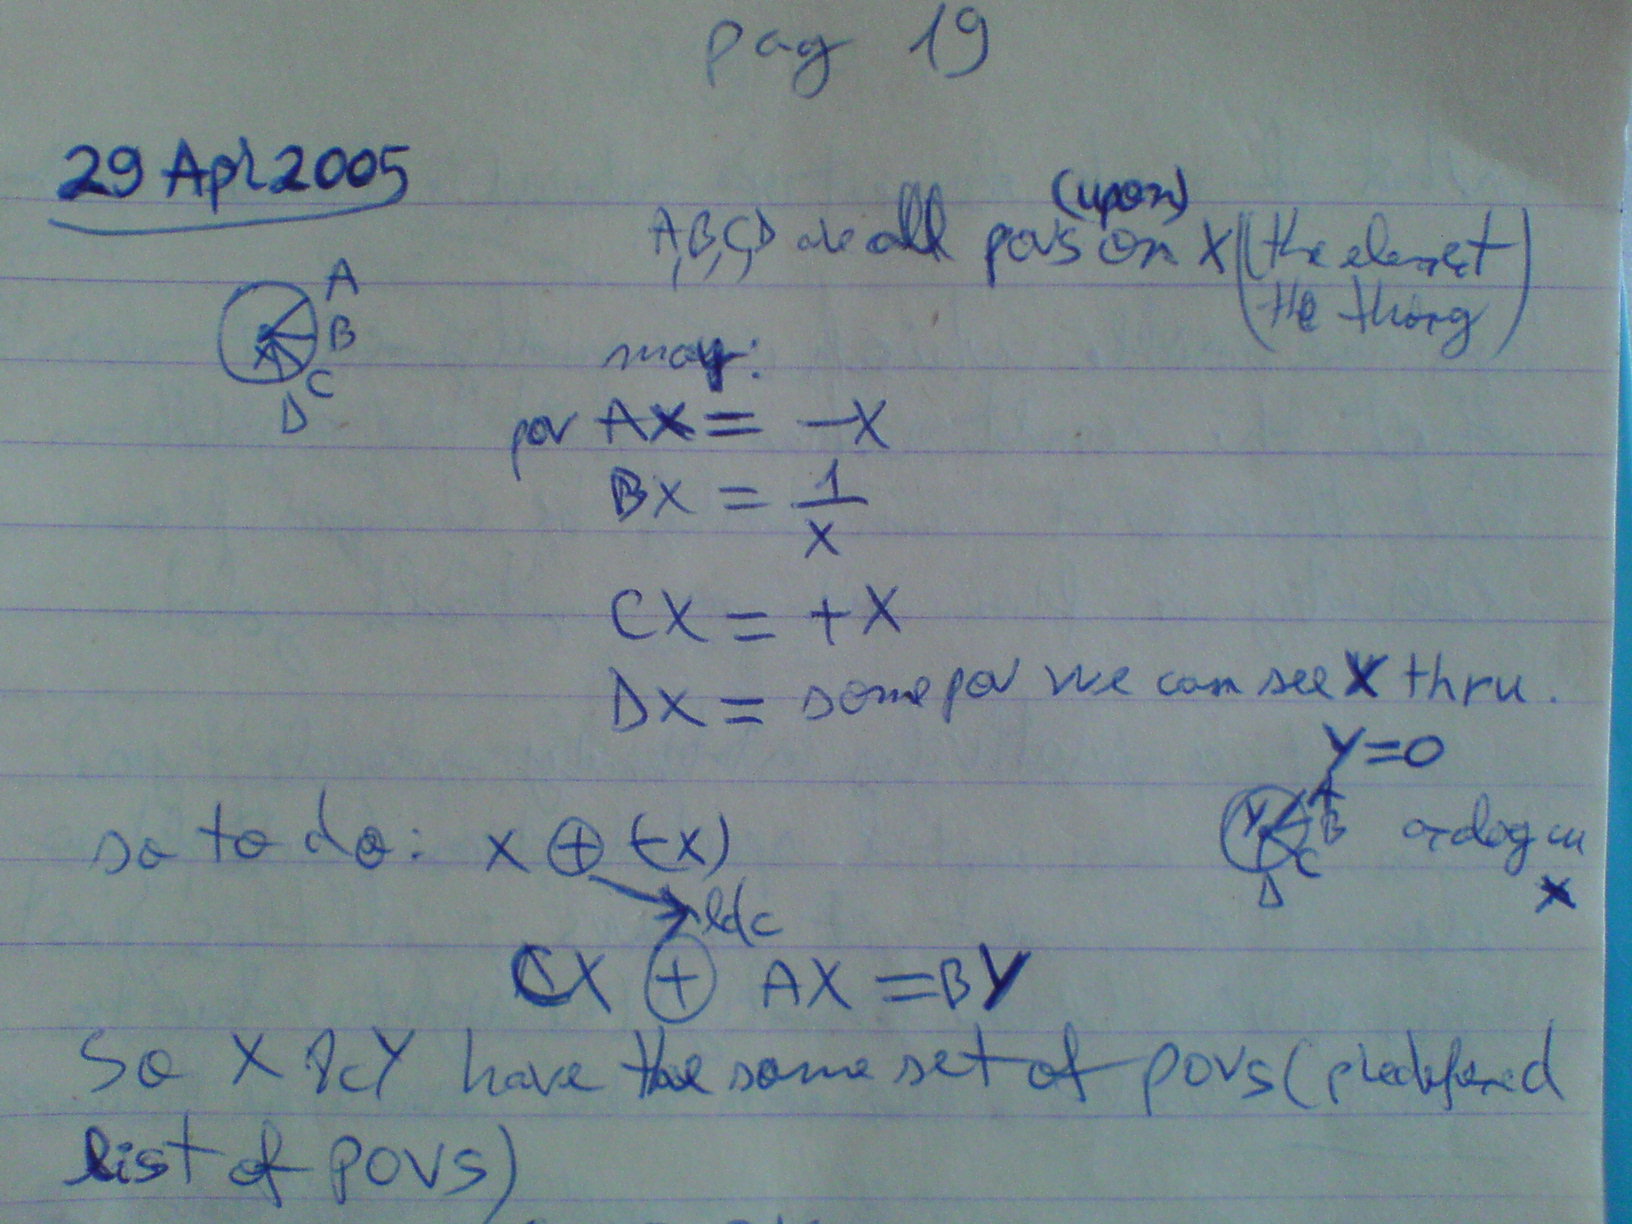 pag 19
29 Apr 2005
(upon)
A,B,C,D are all povs on X (the element
the thing)
A
B
C
D
X
may:
pov AX = -X
BX = 1/X
CX = +X
DX = some pov we can see X thru.
Y=0
so to do: X ⊕ (-X)
Y A
B
C
D
X
CX ⊕ AX = BY
So X & Y have the same set of povs (predefined
list of povs)